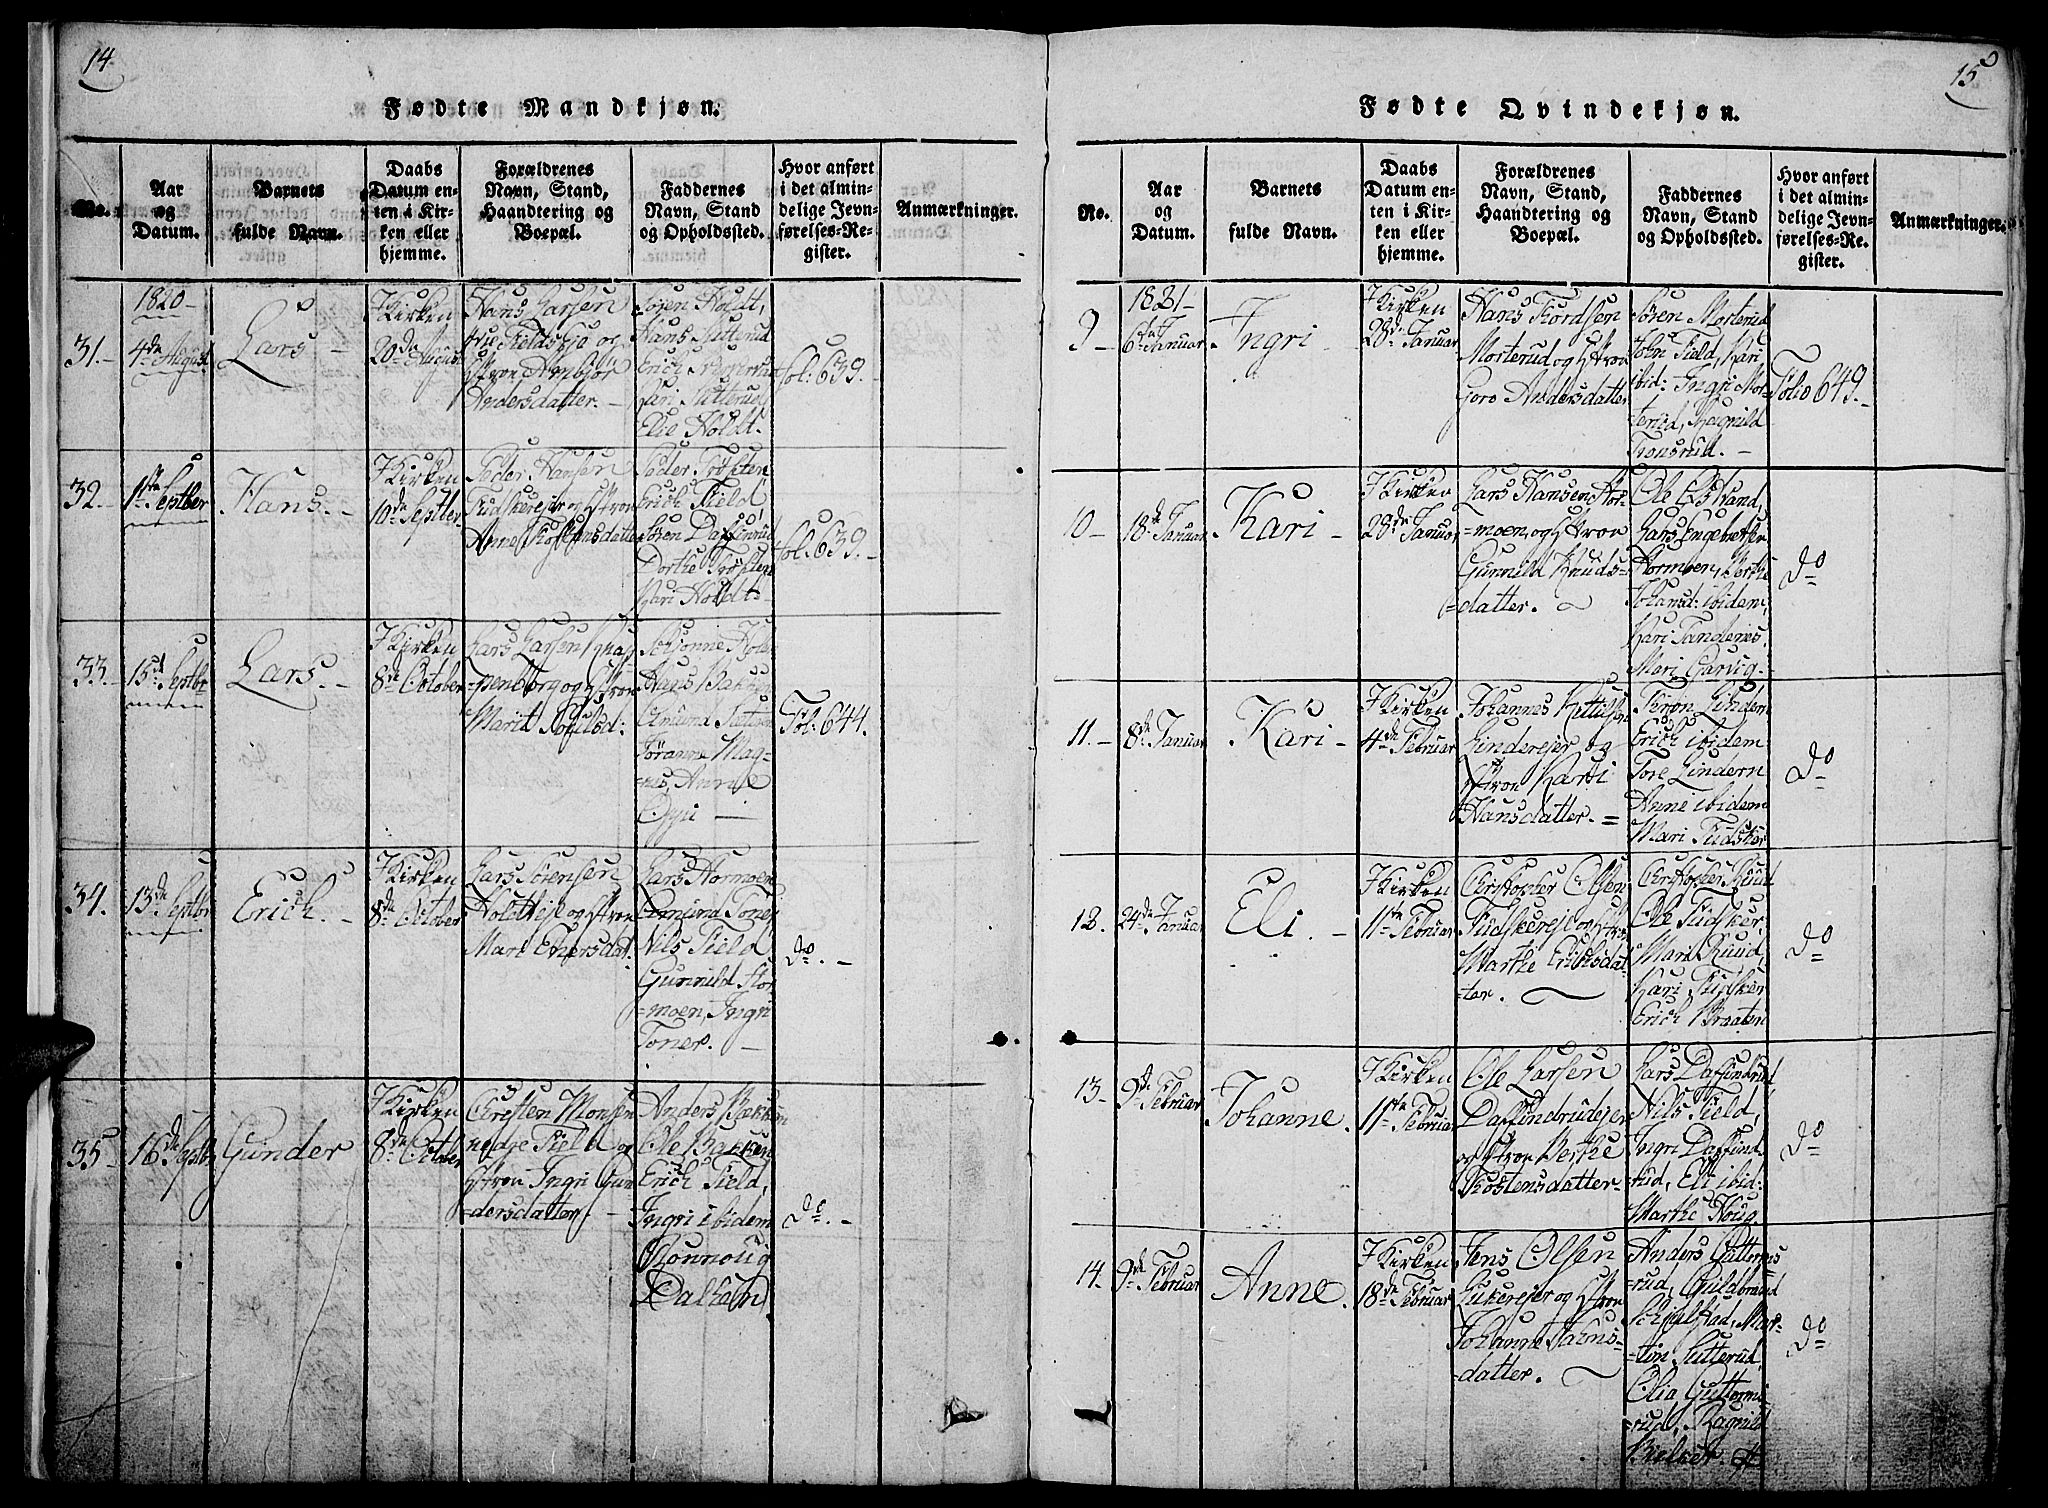 14.
Fødte Mandkjøn.
No.
Aar
og
Datum.
Barnets
fulde Navn.
Daabs
Datum en-
ten i Kir-
ken eller
hjemme.
Forældrenes
Navn, Stand,
Haandtering og
Boepæl.
Faddernes
Navn, Stand
og Opholdssted.
Hvor anført
i det almin-
delige Jevn-
førelses-Re-
gister.
Anmærkninger.
31.-
1820-
4de August
Lars -
I Kirken
20de August
Hans Larsen
og
Hstrøe Anbjør
Andersdatter. -
Sören Holdt,
Hans Sutterud
Erich
Kari Sutterud
Elie Holdt.
Fol: 639. -
32.-
11te Septber
Hans. -
I Kirken
10de Septber
Peder Hansen
og Hstrøe
Anne
Peder
Erich Field
Sören Daffinrud
Dorthe
Kari Holdt-
Fol: 639. -
33.-
15de Septbr
Lars. -
I Kirken
8de October
Lars Larsen Knap-
=penborg og Hstrøe
Marit
Hans Bakken
Amund
Jöranne Mag-
=nes, Anne
Fol: 644.
34.
13de Septbr
Erich. -
I Kirken
8de October
Lars Sörensen
og Hstrøe
Mari
Lars Hormoen
Amund Toner
Nils Field
Gunnild Hor
=moen, Ingri
Toner. -
do. -
35-
16de Septbr
Gunder
I Kirken
8de October
Christen Monsen
nedre Field og
Hstrøe Ingri Gun
=dersdatter. -
Anders Bækken
Ole Bakken
Erich Field,
Ingri ibidem
Ronnoug
Dalheim
do. -
15
Fødte Qvindekjøn.
No.
Aar
og
Datum.
Barnets
fulde Navn.
Daabs
Datum en-
ten i Kir-
ken eller
hjemme.
Forældrenes
Navn, Stand,
Haandtering og
Boepæl.
Faddernes
Navn, Stand
og Opholdssted.
Hvor anført
i det almin-
delige Jevn-
førelses-Re-
gister.
Anmærkninger.
9-
1821-
6te Januar
Ingri -
I Kirken
28de Januar
Hans Thordsen
Morterud og Hstrøe
Goro Andersdatter
Sören Morterud
John Field, Kari
ibid: Ingri Mor-
=terud, Ragnild
Tronsrud. -
Folio 649. -
10-
18de Januar
Kari -
I Kirken
28de Januar
Lars Hansen Hor-
=moen, og Hstrøe
Gunnild Knuds-
=datter.
Ole Östrand,
Lars Engebretsen
Hormoen, Berthe
Johansd: ibidem,
Kari
Mari Garvig-
do
11.-
8de Januar
Kari -
I Kirken
4de Februar
Johannes
Lindereier og
Hstrøe Kari
Hansdatter. =
Thron Lindern
Erich ibidem
Tore Lindern
Anne ibidem
Mari Tudsker
do
12.
24de Januar
Eli. -
I Kirken
11te Februar
Christopher Olsen
og Hstrøe
Marthe Erichsdat-
=ter.
Christopher Ruud
Ole Tudsker,
Mari Ruud,
Kari Tudsker
Erich Braaten
do
13.-
9de Februar
Johanne.
I Kirken
11te Februar
Ole Larsen
Daffindrudeier
og Hstrøe Berthe
Thostensdatter-
Lars Daffindrud,
Nils Field,
Ingri Daffind
=rud, Eli ibid:
Marthe Houg.
do
14.
9de Februar
Anne.
I Kirken
18de Februar
Jens Olsen
og Hstrøe
Johanne
=datter.
Anders Guttorms
=rud, Guldbrand
Mar-
=tin Sutterud,
Olia Guttorms
=rud, Ragnild
do